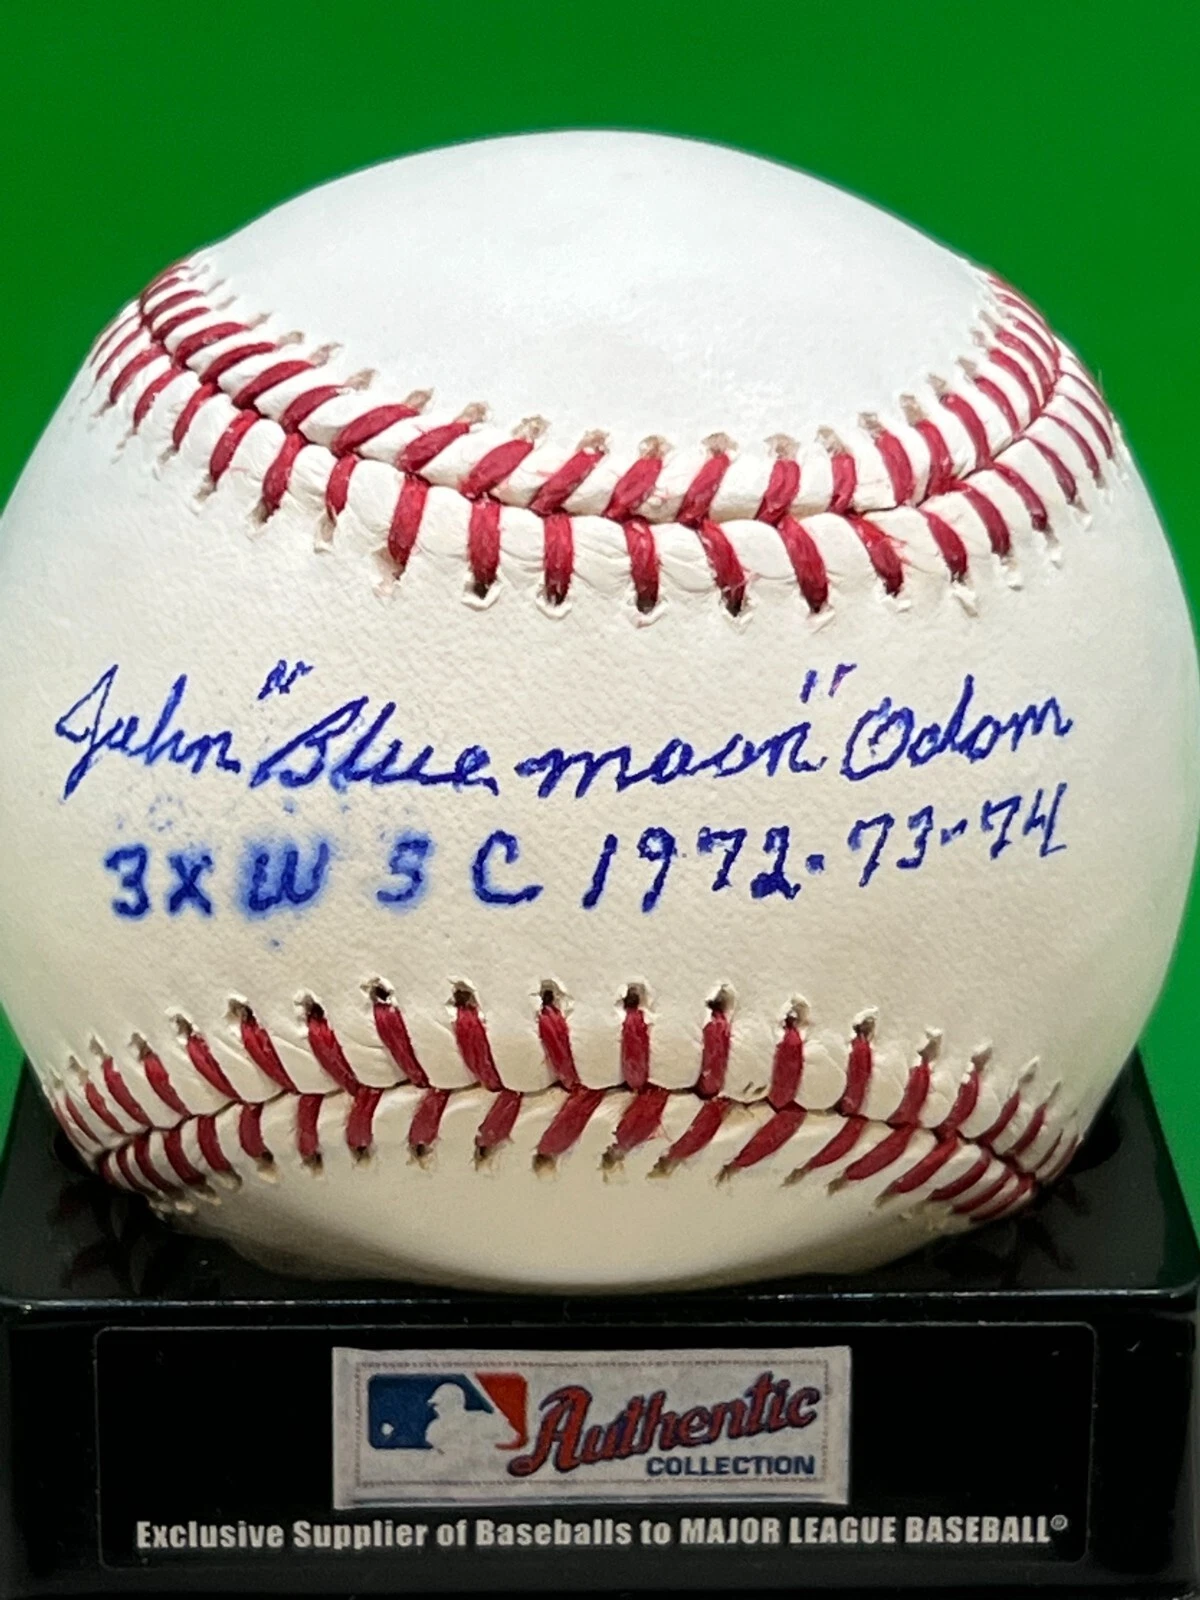 John "Blue moon" Odom
3X W S C 1972-73-74
Authentic
COLLECTION
Exclusive Supplier of Baseballs to MAJOR LEAGUE BASEBALL®